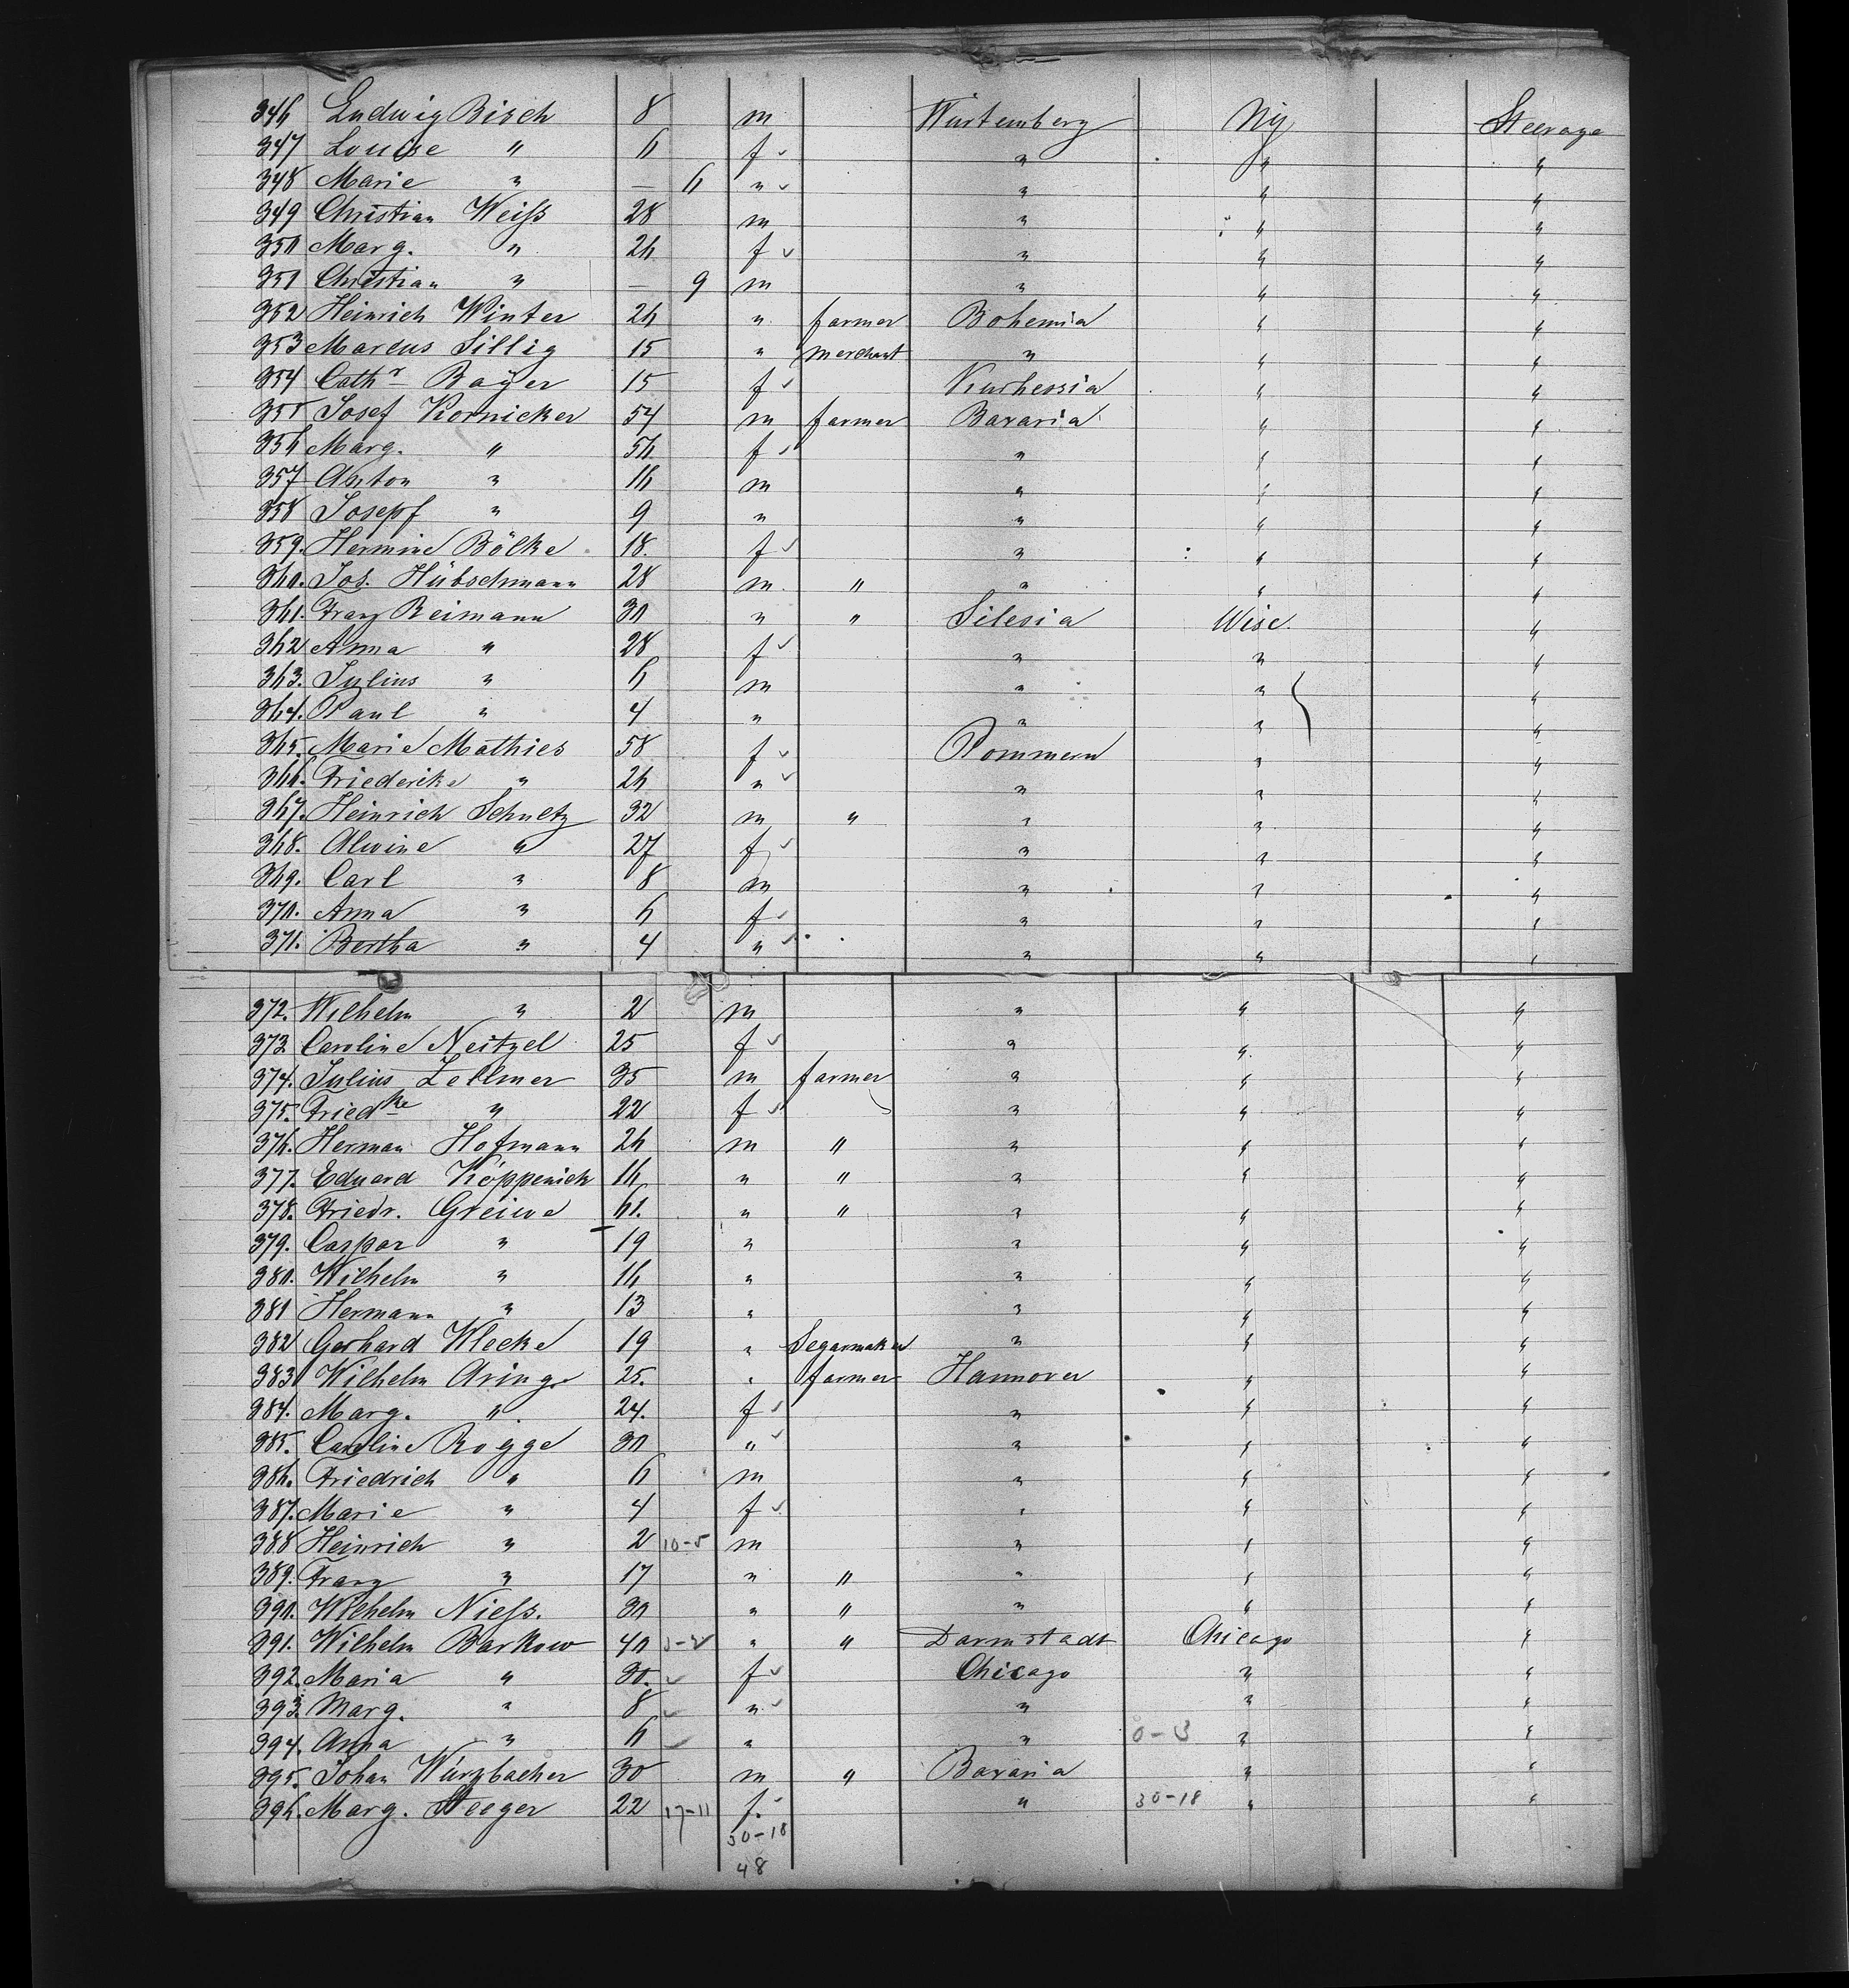 346 Ludwig Bisch 8 m Würtemberg NY Steerage
347 Louise " 6 f " " "
348 Marie " — 6 " " " "
349 Christian Weiss 28 m " " "
350 Marg. " 26 f " " "
351 Christian " — 9 m " " "
352 Heinrich Winter 26 " farmer Bohemia " "
353 Marcus Sillig 15 " merchant " " "
354 Cathr Bayer 15 f Kurhessia " "
355 Josef Kornicker 54 m farmer Bavaria " "
356 Marg. " 56 f " " "
357 Anton " 16 m " " "
358 Josepf " 9 " " " "
359. Hermine Bölke 18. f " " "
360. Jos. Hübschmann 28 m " " " "
361. Franz Reimann 30 " " Silesia Wisc. "
362 Anna " 28 f " " "
363. Julius " 6 m " " "
364. Paul " 4 " " " "
365. Marie Mathies 58 f Pommern " "
366. Friederike " 26 " " " "
367. Heinrich Schultz 32 m " " " "
368. Alwine " 27 f " " "
369. Carl " 8 m " " "
370. Anna " 6 f " " "
371. Bertha " 4 " " " "
372. Wilhelm " 2 m " " "
373. Caroline Neitzel 25 f " " "
374. Julius Zellmer 35 m farmer " " "
375. Friedke " 22 f " " "
376. Herman Hofmann 26 m " " " "
377. Eduard Köppenick 16 " " " " "
378. Friedr. Greiwe 61. " " " " "
379. Caspar " 19 " " " "
380. Wilhelm " 16 " " " "
381 Hermann " 13 " " " "
382 Gerhard Wlecke 19 " Segarmaker " " "
383 Wilhelm Aring 25. " farmer Hannover " "
384. Marg. " 24. f " " "
385. Caroline Rogge 30 " " " "
386. Friedrich " 6 m " " "
387. Marie " 4 f " " "
388 Heinrich " 2 10-5 m " " "
389. Franz " 17 " " " " "
390. Wilhelm Niess. 30 " " " " "
391. Wilhelm Barkow 40 3-2 " " Darmstadt Chicago "
392. Maria " 30. f Chicago " "
393. Marg. " 8 " " " "
394. Anna " 6 " " 0-3 " "
395. Johan Würzbacher 30 m " Bavaria " "
396. Marg. Steeger 22 17-11 f. " 30-18 " "
30-18
48